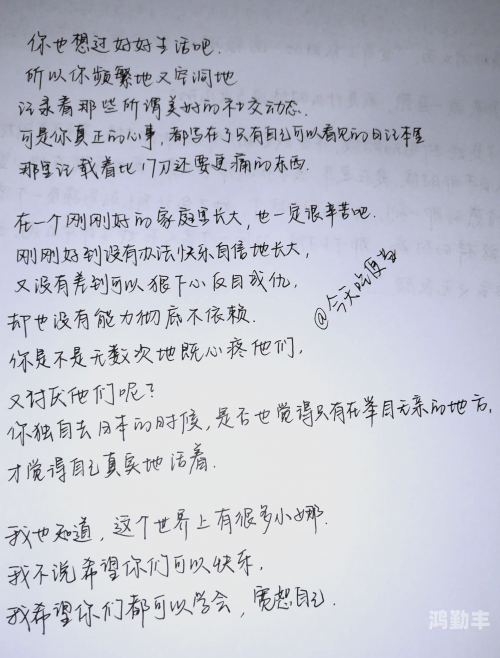 你也想过好好生活吧.
所以你频繁地又空洞地
记录着那些所谓美好的社交动态.
可是你真正的心事，都写在了只有自己可以看见的日记本里
那里记载着比17刀还要更痛的东西.
在一个刚刚好的家庭里长大，也一定很辛苦吧.
刚刚好到没有办法快乐自信地长大，
又没有差到可以狠下心反目成仇，
却也没有能力彻底不依赖.
@今天吃便当
你是不是无数次地既心疼他们，
又讨厌他们呢？
你独自去日本的时候，是否也觉得只有在举目无亲的地方，
才觉得自己真实地活着.
我也知道，这个世界上有很多小娜.
我不说希望你们可以快乐，
我希望你们都可以学会，宽恕自己.
鸿勤丰